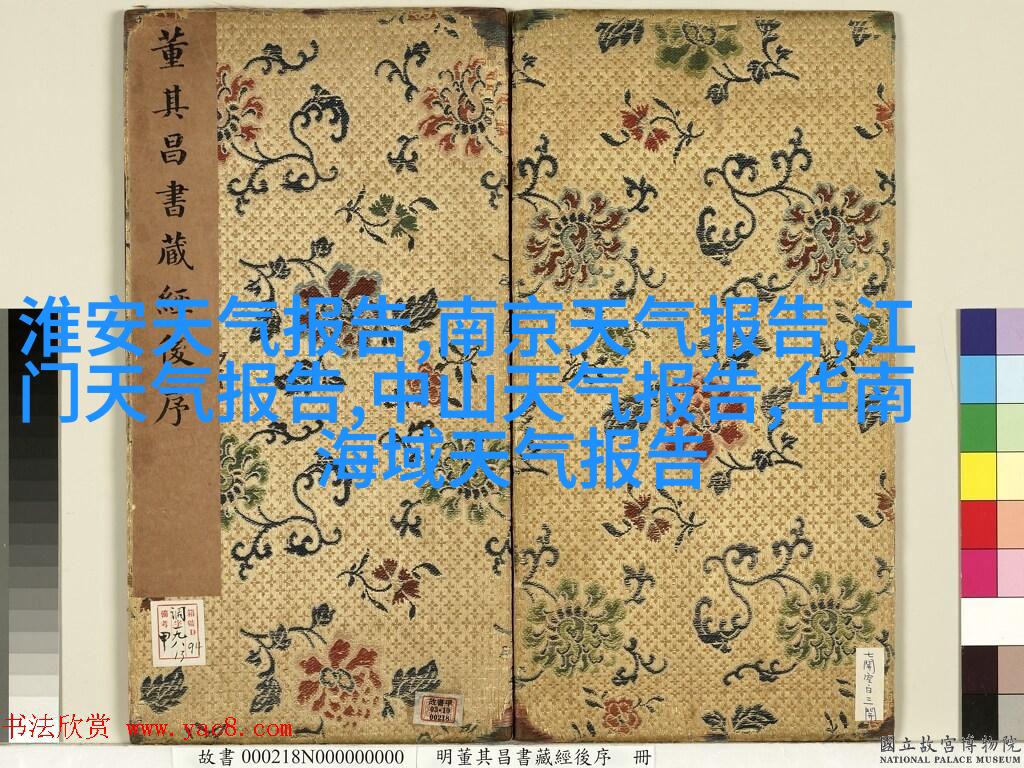 董其昌書藏經後序
淮安天气报告,南京天气报告,江
门天气报告,中山天气报告,华南
海域天气报告
故書甲
03•10
00218
七開空白三開
书法欣赏 www.yac8.com
故書 000218N000000000
明董其昌書藏經後序 冊
國立故宮博物院
NATIONAL PALACE MUSEUM